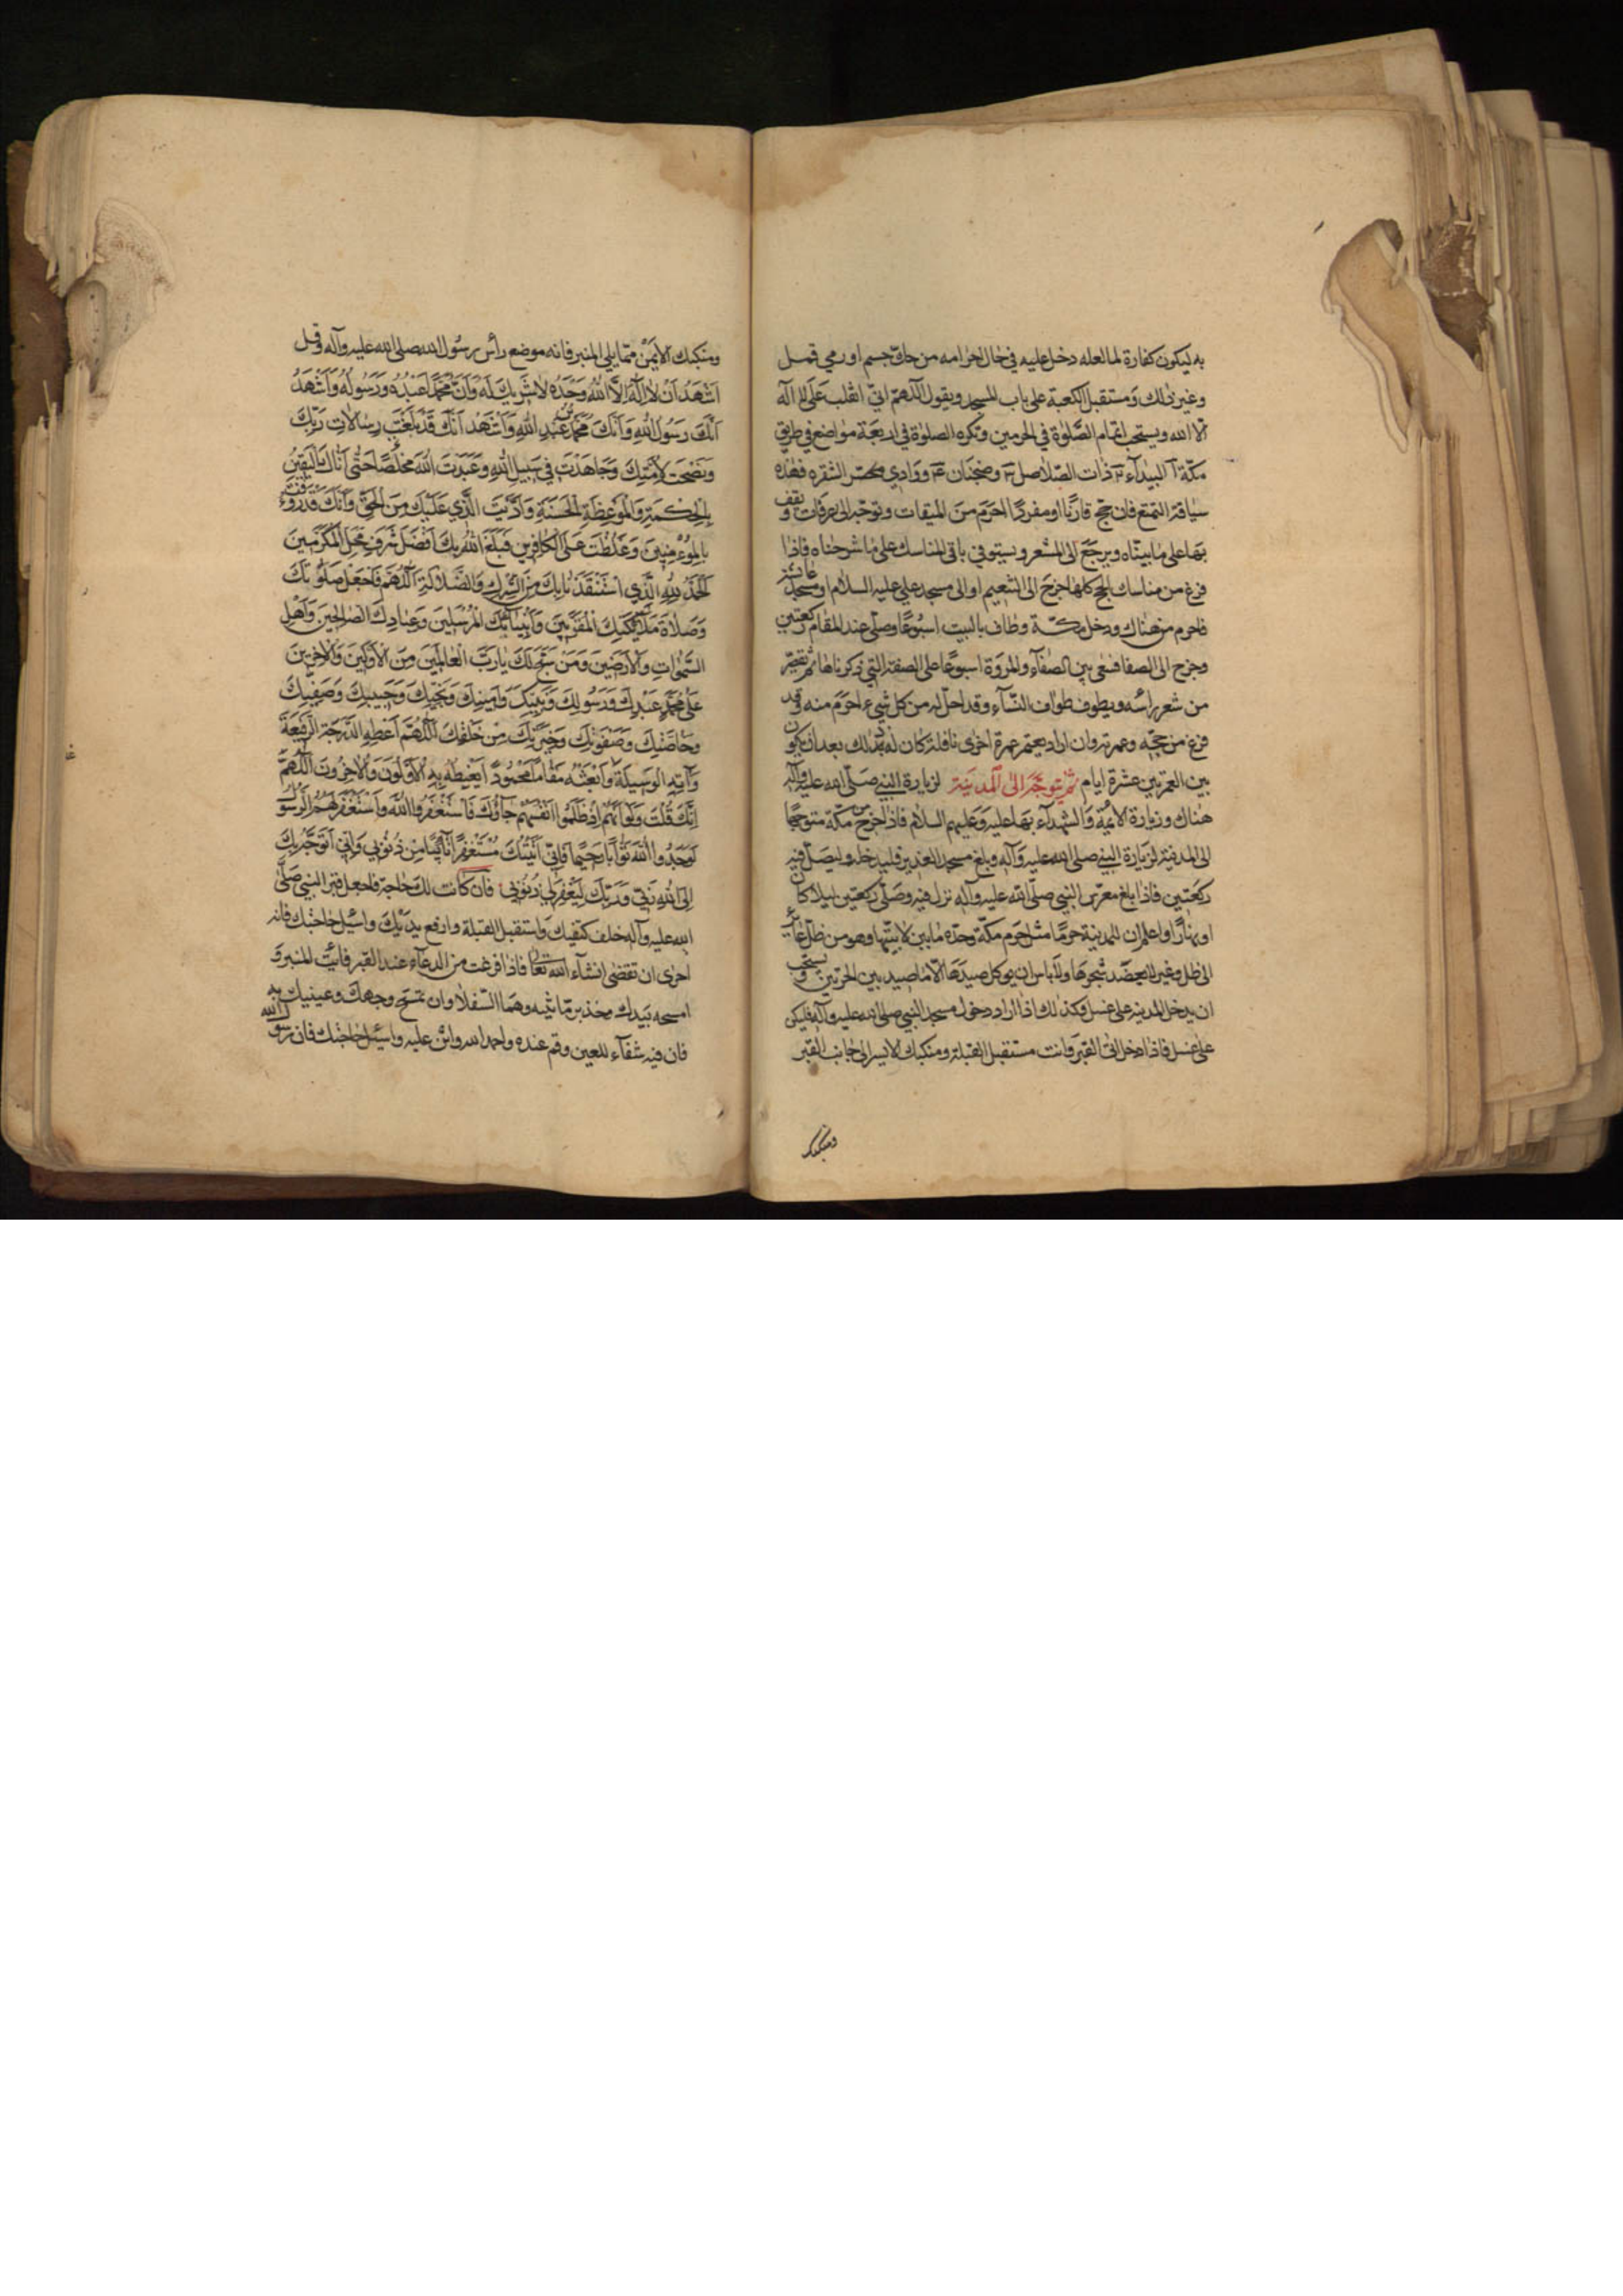 به ليكون كفارة لما لعله دخل عليه في حال احرامه من حك جسم او رمي قمل
وغير ذلك ومستقبل الكعبة على باب المسجد ويقول اللهم اني انقلب على لا اله
الا الله ويستحب اتمام الصلوة في الحرمين وتكره الصلوة في اربعة مواضع في طريق
مكة البيداء وذات الصلاصل وضجنان ووادي الشقره فهذه
سياقة التمتع فان حج قارنا او مفردا احرم من الميقات وتوجه الى عرفات ويقف
بها على ما بيناه ويرجع الى المشعر ويستوفي باقي المناسك على ما شرحناه فاذا
فرغ من مناسك الحج كلها خرج الى التنعيم او الى مسجد علي عليه السلام او مسجد عائشة
فاحرم من هناك ودخل مكة وطاف بالبيت اسبوعا وصلى عند المقام ركعتين
وخرج الى الصفا فسعى بين الصفآء والمروة اسبوعا على الصفة التي ذكرناها ثم تقصر
من شعر راسه ويطوف طواف النسآء وقد احل له من كل شيء احرم منه وقد
فرغ من حجه وعمرته وان اراد يعتمر عمرة اخرى نافلة كان له ذلك بعد ان يكون
بين العمرتين عشرة ايام ثم يتوجه الى المدينة لزيارة النبي صلى الله عليه وآله
هناك وزيارة الائمة والشهدآء بها عليه وعليهم السلام فاذا خرج من مكة متوجها
الى المدينة لزيارة النبي صلى الله عليه وآله وبلغ مسجد الغدير فليدخله وليصل فيه
ركعتين فاذا بلغ معرس النبي صلى الله عليه وآله نزل فيه وصلى ركعتين ليلا كان
او نهارا واعلم ان للمدينة حرما مثل حرم مكة وحده ما بين لابتيها وهو من ظل عاير
الى ظل وعير لا يعضد شجرها ولا باس ان يوكل صيدها الا ما صيد بين الحرتين ويستحب
ان يدخل المدينة على غسل وكذلك اذا اراد دخول مسجد النبي صلى الله عليه وآله فليكن
على غسل فاذا دخل اتى القبر وانت مستقبل القبلة ومنكبك الايسر الى جانب القبر
ومنكبك
ومنكبك الايمن مما يلي المنبر فانه موضع رأس رسول الله صلى الله عليه وآله وقل
اشهد ان لا اله الا الله وحده لا شريك له وان محمدا عبده ورسوله واشهد
انك رسول الله وانك محمد بن عبد الله واشهد انك قد بلغت رسالات ربك
ونصحت لامتك وجاهدت في سبيل الله وعبدت الله مخلصا حتى اتاك اليقين
بالحكمة والموعظة الحسنة واديت الذي عليك من الحق وانك قد رؤفت
بالمؤمنين وغلظت على الكافرين فبلغ الله بك افضل شرف محل المكرمين
الحمد لله الذي استنقذنا بك من الشرك والضلالة اللهم فاجعل صلواتك
وصلاة ملائكتك المقربين وانبيائك المرسلين وعبادك الصالحين واهل
السموات والارضين ومن سبح لك يا رب العالمين من الاولين والاخرين
على محمد عبدك ورسولك ونبيك وامينك ونجيك وحبيبك وصفيك
وخاصتك وصفوتك وخيرتك من خلقك اللهم اعطه الدرجة الرفيعة
وآته الوسيلة وابعثه مقاما محمودا يغبطه به الاولون والاخرون اللهم
انك قلت ولو انهم اذ ظلموا انفسهم جاؤك فاستغفروا الله واستغفر لهم الرسول
لوجدوا الله توابا رحيما فاني اتيتك مستغفرا تائبا من ذنوبي واني اتوجه بك
الى الله ربي وربك ليغفر لي ذنوبي فان كانت لك حاجة فاجعل قبر النبي صلى
الله عليه وآله خلف كتفيك واستقبل القبلة وارفع يديك واسئل حاجتك فانه
احرى ان تقضى انشآء الله تعالى فاذا فرغت من الدعآء عند القبر فائت المنبر و
امسحه بيدك وخذ برمانتيه وهما السفلان وان تمسح وجهك وعينيك به
فان فيه شفآء للعين وقم عنده واحمد الله واثن عليه واسئل حاجتك فان رسول الله